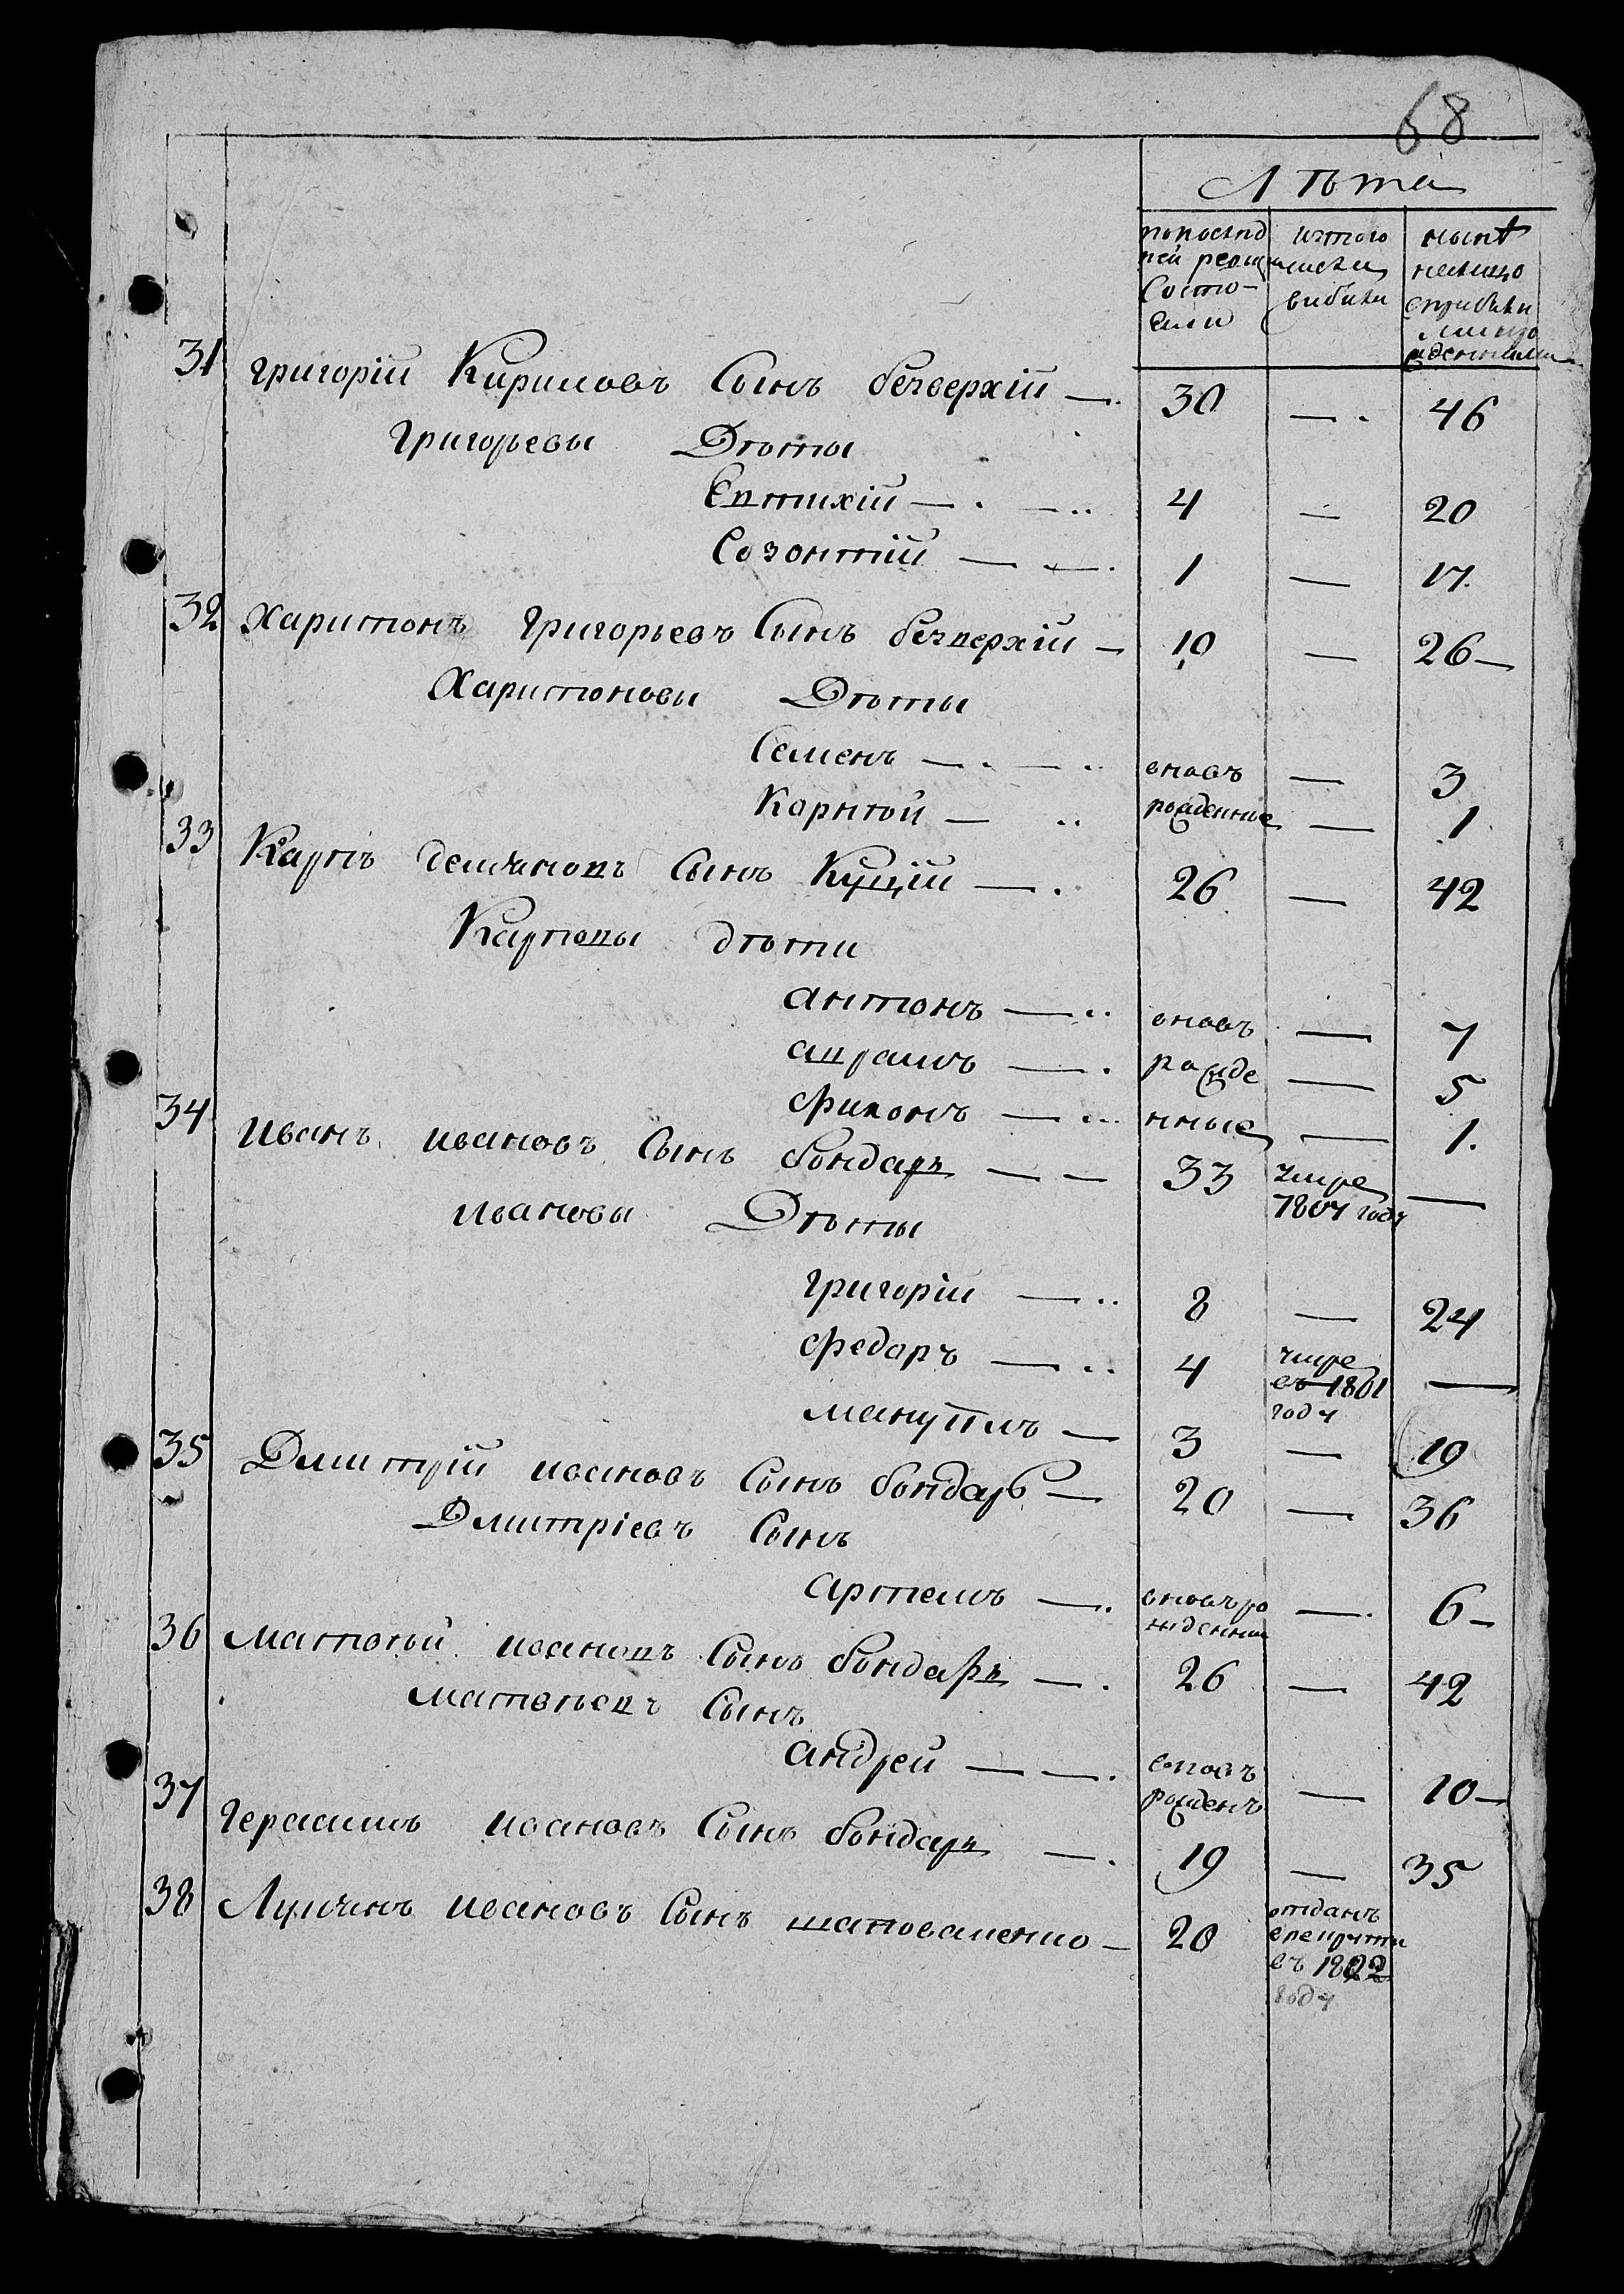 68
Лѣта
попослѣд изтого нынѣ
ней ревизи числа налицо
Состо- выбыли
яли
31 григорій Кириловъ Сынъ безверхій — 30 — 46
Григорьевы Дѣти
Евтихій — 4 — 20
Созонтій — 1 — 17.
32 Харитонъ Григорьевъ Сынъ безверхій — 10 — 26 —
Харитоновы Дѣти
Семенъ — вновь — 3
Корнѣй — рожденные — 1
33 Карпъ демяновъ Сынъ Куцій — 26 — 42
Карповы дѣти
антонъ — вновь — 7
аврамъ — рожде — 5
филонъ — нные — 1.
34 Иванъ ивановъ Сынъ бондарь — 33 умре —
1807 году
Ивановы Дѣти
григорій — 8 — 24
федоръ — 4 умре —
въ 1801
году
мануилъ — 3 — 19
35 Дмитрій ивановъ Сынъ бондарь — 20 — 36
Дмитріевъ Сынъ
артемъ — вновь ро — 6 —
жденный
36 Матвѣй ивановъ Сынъ бондарь — 26 — 42
матвѣевъ Сынъ
андрей — вновь — 10 —
рожденъ
37 Герасимъ ивановъ Сынъ бондарь — 19 — 35
38 Лукянъ ивановъ Сынъ шаповаленко — 20 отданъ
в рекруты
въ 1802
году